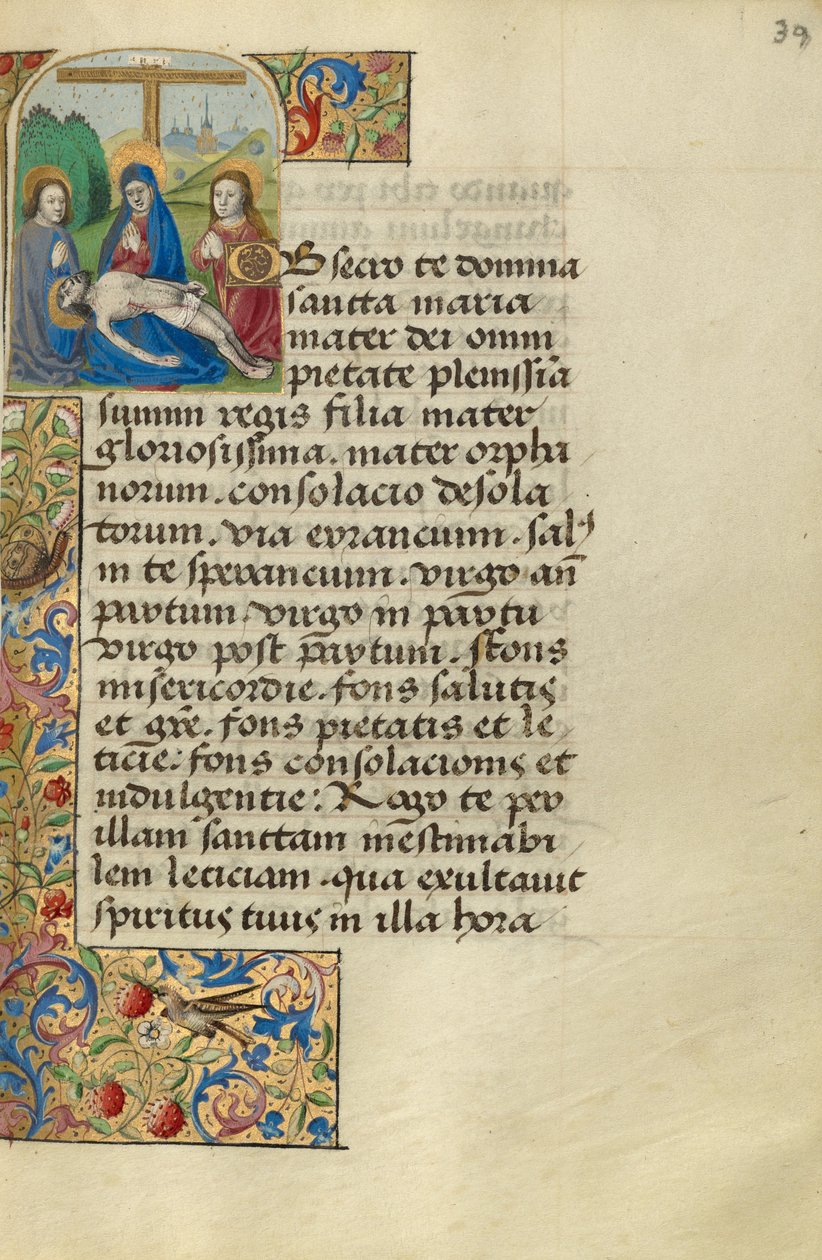 39
Obsecro te domina
sancta maria
mater dei omni
pietate plenissīa
summi regis filia mater
gloriosissima. mater orpha
norum. consolacio desola
torum. via errancium. salꝰ
in te sperancium. virgo an̄
partum. virgo in partu
virgo post partum. ffons
misericordie. fons salutis
et gr̄e. fons pietatis et le
ticie: fons consolacionis et
indulgentie: Rogo te per
illam sanctam inestimabi
lem leticiam. qua exultauit
spiritus tuus in illa hora